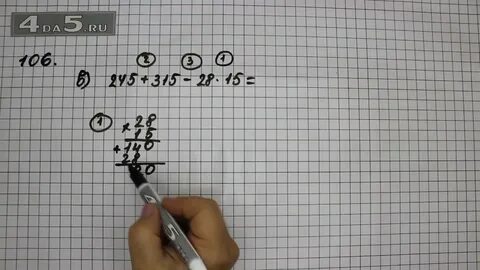 4DA5.RU
106. ② ③ ①
в) 245 + 315 − 28 · 15 =
① × 28
15
+ 140
28
20
4
5